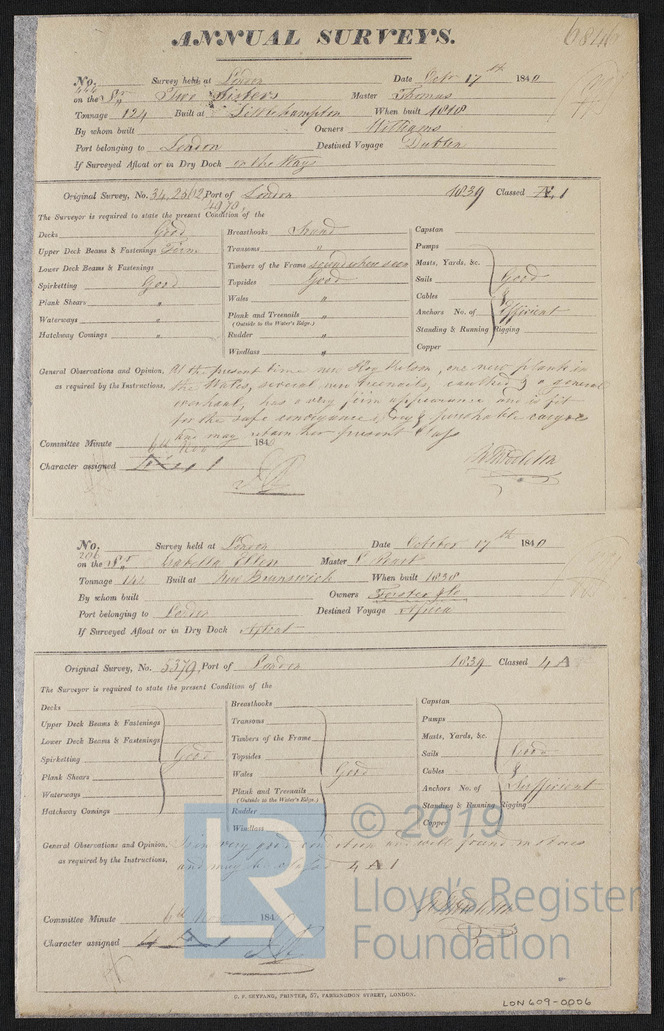 6846
ANNUAL SURVEYS.
No. 444 Survey held at London Date Octr 17th 1840
on the Sr Two Sisters Master Thomas
Tonnage 124 Built at Littlehampton When built 1818
By whom built Owners Williams
Port belonging to London Destined Voyage Dublin
If Surveyed Afloat or in Dry Dock on the Ways
Original Survey, No. Port of London 1839 Classed Æ 1
The Surveyor is required to state the present Condition of the
Decks Good
Upper Deck Beams & Fastenings Firm
Lower Deck Beams & Fastenings
Spirketting Good
Plank Shears "
Waterways "
Hatchway Comings "
Breasthooks Sound
Transoms "
Timbers of the Frame seen when seen
Topsides Good
Wales "
Plank and Treenails "
(Outside to the Water's Edge.)
Rudder "
Windlass "
Capstan
Pumps
Masts, Yards, &c.
Sails Good
Cables &
Anchors No. of Efficient
Standing & Running Rigging
Copper
General Observations and Opinion, At the present time a new Keelson, one new plank in
as required by the Instructions, the Wales, several new treenails, caulked & a general
overhaul, has a very firm appearance and is fit
for the safe conveyance of Dry & perishable cargoes
and may retain her present Class
Committee Minute 6th Novr 1840
Character assigned Æ 1
No. 206 Survey held at London Date October 17th 1840
on the Sr Isabella Ellen Master
Tonnage 144 Built at New Brunswick When built 1838
By whom built Owners Forster & Co
Port belonging to London Destined Voyage Africa
If Surveyed Afloat or in Dry Dock Afloat
Original Survey, No. 5379 Port of London 1839 Classed 4 A
The Surveyor is required to state the present Condition of the
Decks
Upper Deck Beams & Fastenings
Lower Deck Beams & Fastenings
Spirketting Good
Plank Shears
Waterways
Hatchway Comings
Breasthooks
Transoms
Timbers of the Frame
Topsides
Wales Good
Plank and Treenails
(Outside to the Water's Edge.)
Rudder
Windlass
Capstan
Pumps
Masts, Yards, &c.
Sails Good
Cables &
Anchors No. of Sufficient
Standing & Running Rigging
Copper
General Observations and Opinion, Is in very good condition and well found in stores
as required by the Instructions, and may be classed 4 A 1
Committee Minute 6th Nov 184
Character assigned 4 A 1
© 2019
LR
Lloyd's Register
Foundation
C. F. SEYFANG, PRINTER, 57, FARRINGDON STREET, LONDON.
LON609-0006